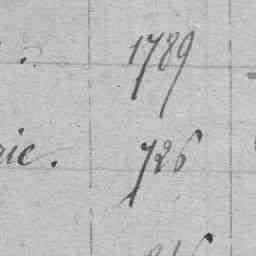 1789
rie. 726